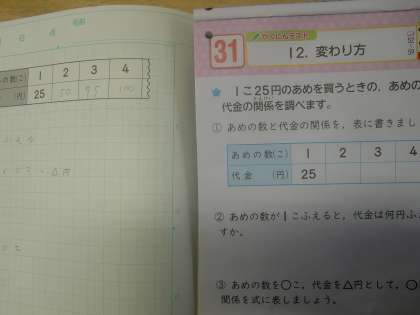 の数(こ) 1 2 3 4
(円) 25 50 75 100
31
かくにんテスト
12. 変わり方
★ 1こ25円のあめを買うときの、あめの
代金の関係を調べます。
① あめの数と代金の関係を、表に書きまし
あめの数(こ) 1 2 3 4
代金 (円) 25
② あめの数が1こふえると、代金は何円ふ
すか。
③ あめを○こ、代金を△円として、○
関係を式に表しましょう。